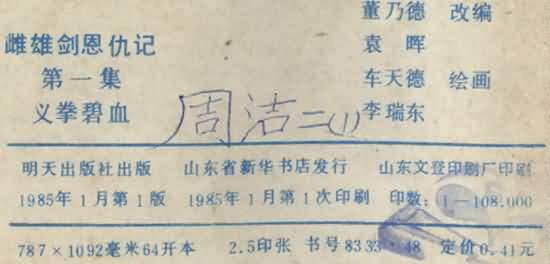 董乃德 改编
雌雄剑恩仇记
袁晖
第一集
车天德 绘画
义拳碧血
周洁二(1)
李瑞东
明天出版社出版 山东省新华书店发行 山东文登印刷厂印刷
1985年1月第1版 1985年1月第1次印刷 印数:1—108.000
787×1092毫米64开本 2.5印张 书号8333·48 定价0.41元